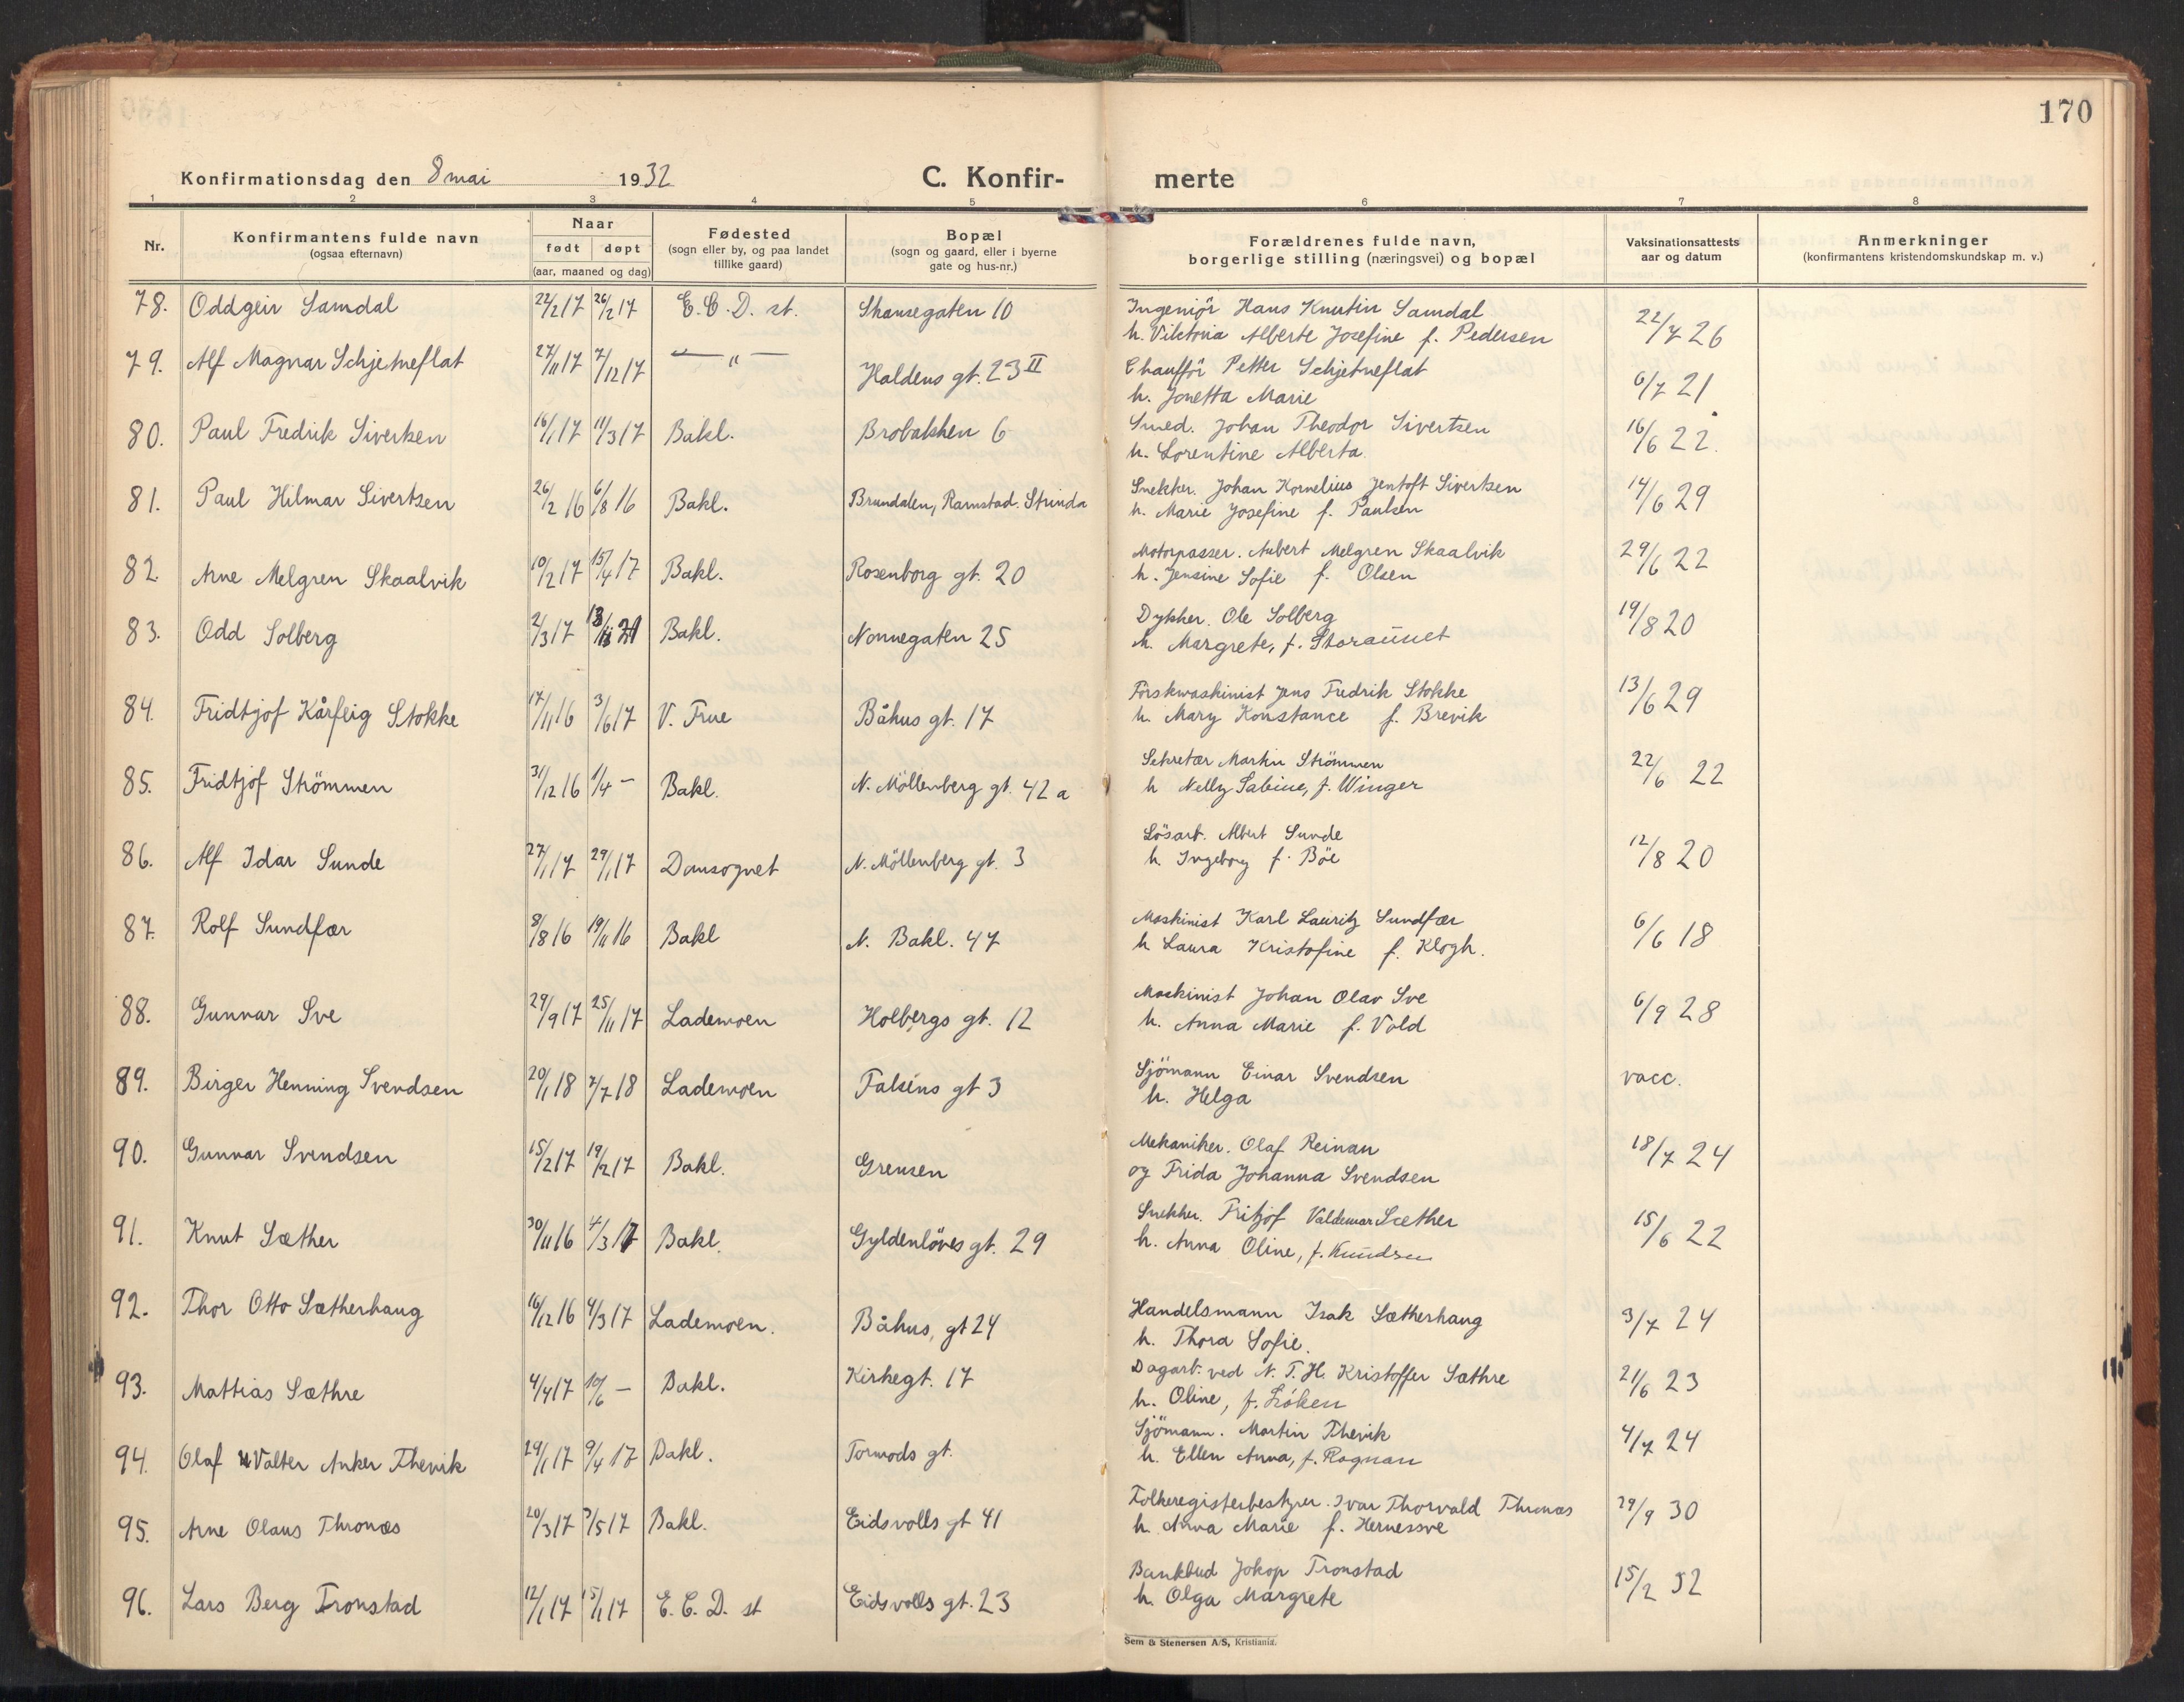 170
Konfirmationsdag den 8 mai 1932 C. Konfir- merte
1 2 3 4 5 6 7 8
Nr.
Konfirmantens fulde navn
(ogsaa efternavn)
Naar
født døpt
(aar, maaned og dag)
Fødested
(sogn eller by, og paa landet
tillike gaard)
Bopæl
(sogn og gaard, eller i byerne
gate og hus-nr.)
Forældrenes fulde navn,
borgerlige stilling (næringsvei) og bopæl
Vaksinationsattests
aar og datum
Anmerkninger
(konfirmantens kristendomskundskap m. v.)
78. Oddgeir Samdal 22/2 17 26/2 17 E.C.D. st. Skansegaten 10 Ingeniör Hans Knutin Samdal 22/7 26
h. Viktoria Alberte Josefine f. Pedersen
79. Alf Magnar Schjetneflat 27/11 17 7/12 17 — " — Haldens gt. 23 II Chaufför Petter Schjetneflat 6/7 21
h. Jonetta Marie
80. Paul Fredrik Sivertsen 16/1 17 11/3 17 Bakl. Brobakken 6 Smed. Johan Theodor Sivertsen 16/6 22.
h. Lorentine Alberta.
81. Paul Hilmar Sivertsen 26/2 16 6/8 16 Bakl. Brundalen, Ramstad. Strinda Snekker. Johan Kornelius Jentoft Sivertsen 14/6 29
h. Marie Josefine f. Paulsen
82. Arne Melgren Skaalvik 10/2 17 15/4 17 Bakl. Rosenborg gt. 20 Motorpasser. Anbert Melgren Skaalvik 29/6 22
h. Jensine Sofie f. Olsen
83. Odd Solberg 2/3 17 Bakl. Nonnegaten 25 Dykker. Ole Solberg 19/8 20
h. Margrete, f. Storaunet
84. Fridtjof Kårfeig Stokke 17/11 16 3/6 17 V. Frue Båhus gt. 17 Förskmaskinist Jens Fredrik Stokke 13/6 29
h. Mary Konstance f. Brevik
85. Fridtjof Strömmen 31/12 16 1/4 — Bakl. N. Möllenberg gt. 42 a Sekretær Martin Strömmen 22/6 22
h Nelly Sabine, f. Winger
86. Alf Idar Sunde 27/1 17 29/1 17 Domsognet N. Möllenberg gt. 3 Lösarb. Albert Sunde 12/8 20
h Ingeborg f. Böe
87. Rolf Sundfær 8/8 16 19/11 16 Bakl N. Bakl. 47 Maskinist Karl Lauritz Sundfær 6/6 18
h Laura Kristofine f. Klogh.
88. Gunnar Sve 29/9 17 25/11 17 Lademoen Holbergs gt. 12 Maskinist Johan Olav Sve 6/9 28
h. Anna Marie f. Vold
89. Birger Henning Svendsen 20/1 18 7/7 18 Lademoen Falsens gt 3 Sjömann Einar Svendsen vacc.
h. Helga
90. Gunnar Svendsen 15/2 17 19/2 17 Bakl. Grensen Mekaniker. Olaf Reinan 18/7 24
og Frida Johanna Svendsen
91. Knut Sæther 30/11 16 4/3 17 Bakl. Gyldenlöves gt. 29 Snekker. Fritjof Valdemar Sæther 15/6 22
h. Anna Oline, f. Knudsen
92. Thor Otto Sætherhaug 16/12 16 4/3 17 Lademoen. Båhus, gt 24 Handelsmann Isak Sætherhaug 3/7 24
h. Thora Sofie.
93. Mattias Sæthre 4/4 17 10/6 — Bakl. Kirkegt. 17 Dagarb. ved N.T.H. Kristoffer Sæthre 21/6 23
h. Oline, f. Löken
94. Olaf Valter Anker Thevik 29/1 17 9/4 17 Bakl. Tormods gt. Sjömann. Martin Thevik 4/7 24
h. Ellen Anna, f. Rognan
95. Arne Olaus Thronæs 20/3 17 3/5 17 Bakl. Eidsvolls gt 41 Folkeregisterbestyrer. Ivar Thorvald Thronæs 29/9 30
h. Anna Marie f. Hernessve
96. Lars Berg Tronstad 12/1 17 15/1 17 E.C.D. st Eidsvolls gt. 23 Bankbud Jakop Tronstad 15/2 32
h. Olga Margrete
Sem & Stenersen A/S, Kristiania.